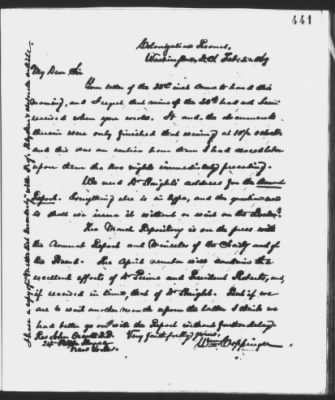 441
Colonization Rooms,
Washington, D.C. Feb: 24 1869
My Dear Sir
Your letter of the 23rd inst. came to hand this
morning, and I regret that mine of the 20th had not been
received when you wrote. It and the documents
therein were only finished that evening at 10 P.M. o'clock
and this was an entire hour than I had
upon them the two nights immediately preceding.
We need Dr Haight's address for the Annual
Report. Everything else is in type, and the question is
is shall we issue it without or wait on the Doctor?
The March Repository is on the press with
the Annual Report and Minutes of the Society and of
the Board. The April number will contain the
excellent efforts of Dr Peirne and President Roberts, and,
if received in time, that of Dr Haight. But if we
are to wait another month upon the latter I think we
had better go on with the Report without further delay.
Rev John Orcutt D.D. Very faithfully yours,
Wm Coppinger
New York.